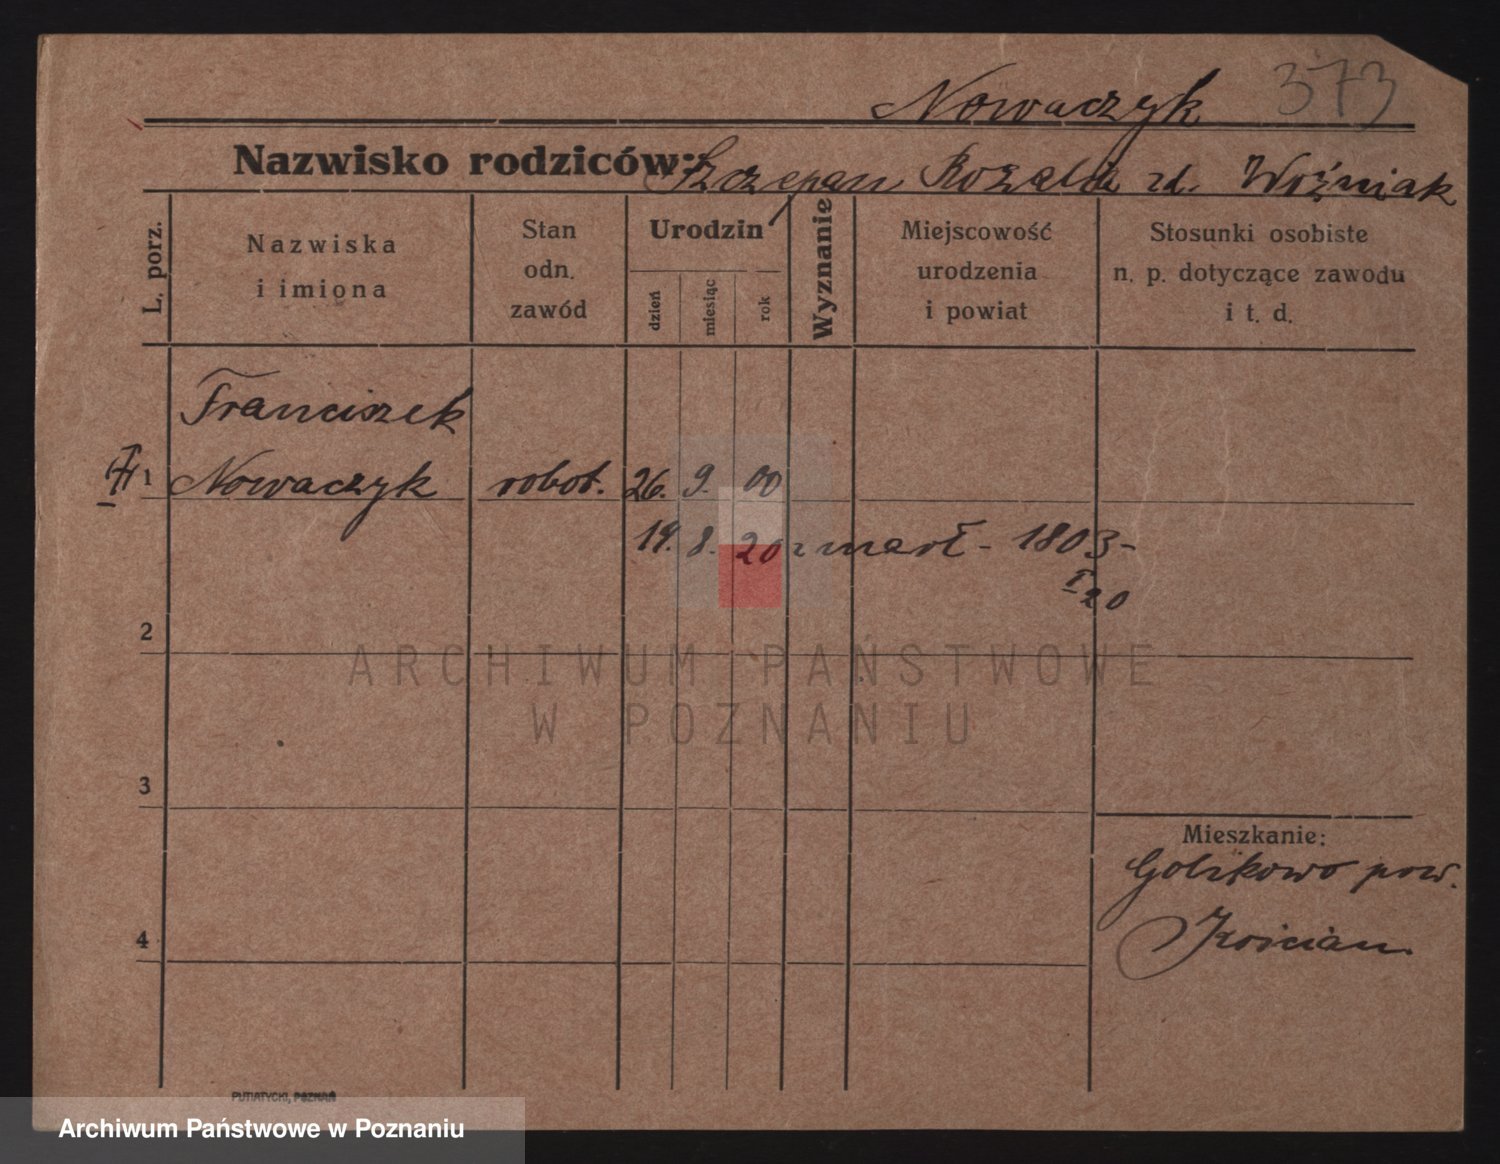 Nowaczyk 373
Nazwisko rodziców: Szczepan Rozalia zd. Woźniak
L. porz.
Nazwiska
i imiona
Stan
odn.
zawód
Urodzin
dzień
miesiąc
rok
Wyznanie
Miejscowość
urodzenia
i powiat
Stosunki osobiste
n. p. dotyczące zawodu
i t. d.
Franciszek
1 Nowaczyk robot. 26. 9. 00
19. 8. 20 zmarł - 1803-
I 20
2
ARCHIWUM PAŃSTWOWE
W POZNANIU
3
Mieszkanie:
Golzkowo pow.
Kościan.
4
PUTIATYCKI, POZNAŃ
Archiwum Państwowe w Poznaniu